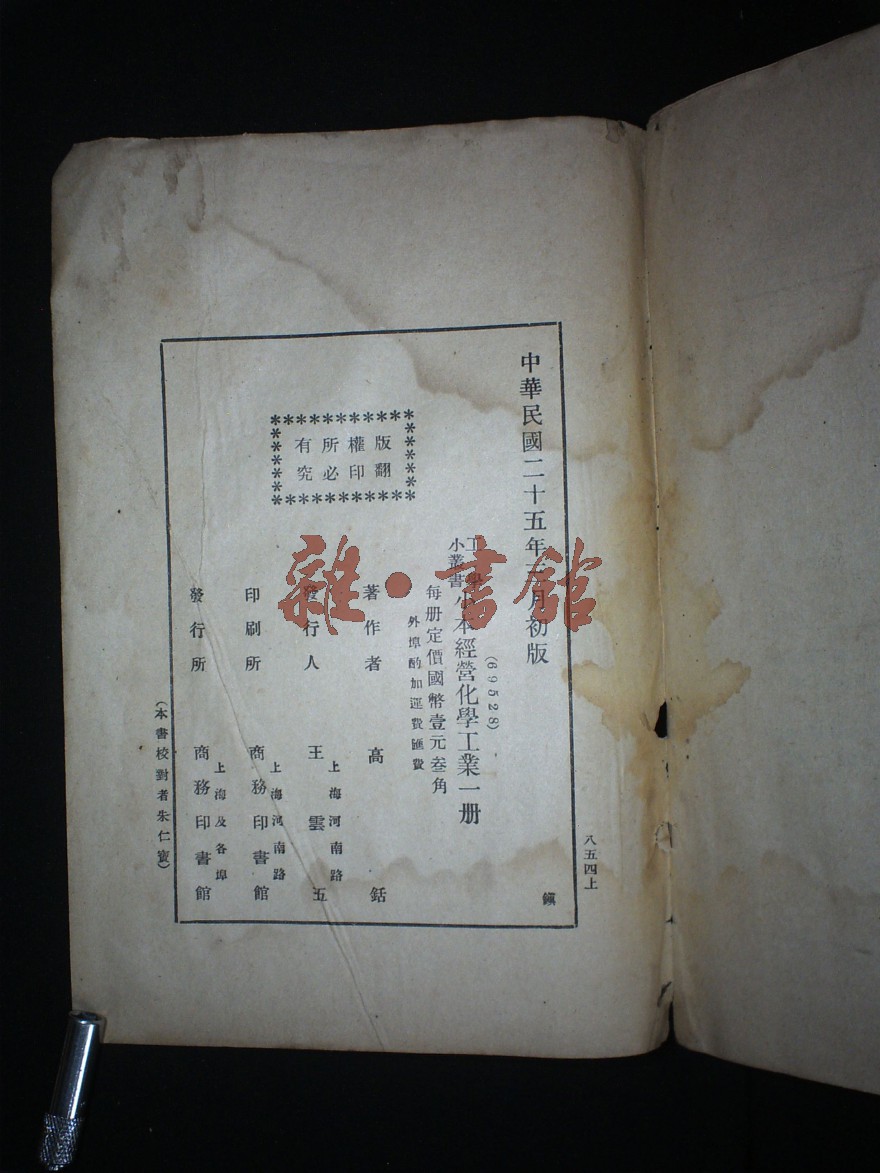 中華民國二十五年
月初版
(69528)
工學
小叢書
小本經營化學工業一册
每册定價國幣壹元叁角
外埠酌加運費匯費
版權所有
翻印必究
著作者 高銛
發行人 王雲五
上海河南路
印刷所 商務印書館
上海河南路
發行所 商務印書館
上海及各埠
(本書校對者朱仁寶)
八五四上
雜·書館